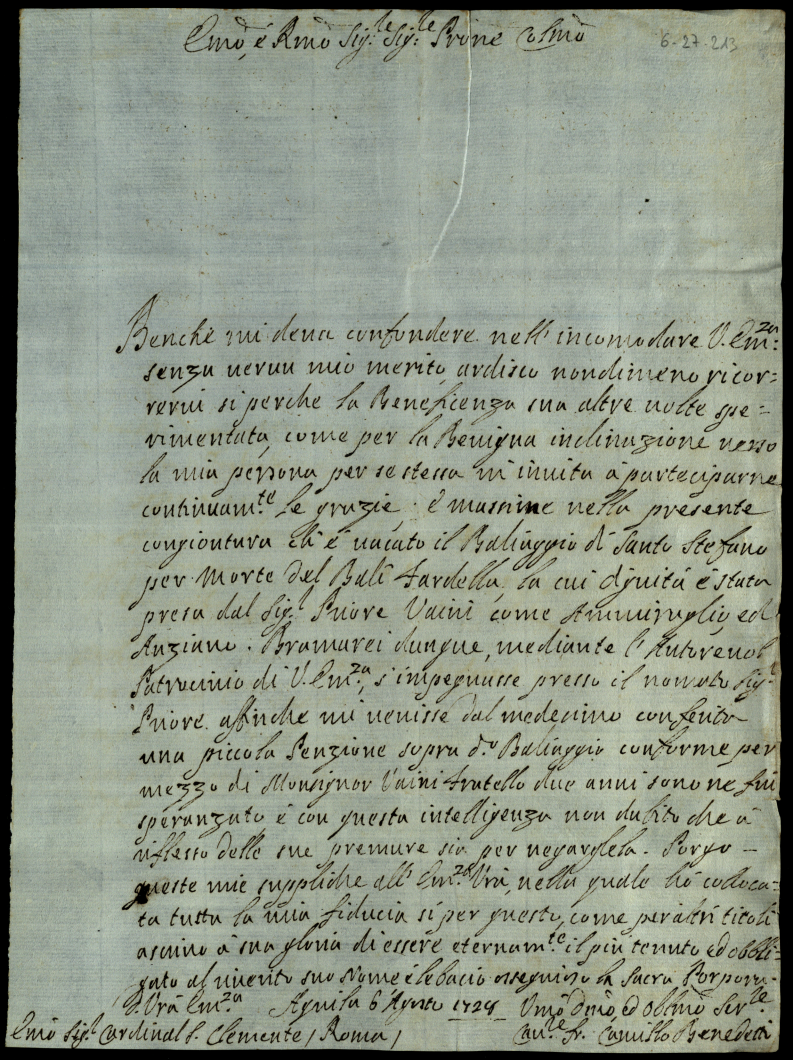 Emō, é Rmō Sig:le Sig:le Prōne Colmō
6-27-213
Benche mi deva confondere nell'incomodare V. Em:za
senza verun mio merito, ardisco nondimeno ricor=
rervi si perche la Beneficenza sua altre volte spe=
rimentata, come per la Benigna inclinazione verso
la mia persona per se stessa m'invita à participarne
continuam:te le grazie; é massime nella presente
congiontura ch'é vacato il Baliaggio di Santo Stefano
per Morte del Balì Fardella, la cui dignità é stata
presa dal Sig:r Priore Vaini come Ammiraglio, ed
Anziano. Bramarei dunque, mediante l'Autorevol
Patrocinio di V. Em:za, s'impegnasse presso il nomato Sig:r
Priore affinche mi venisse dal medesimo conferita
una piccola Penzione sopra d:o Baliaggio conforme per
mezzo di Monsignor Vaini Fratello due anni sono ne fui
speranzato é con questa intelligenza non dubito che à
riflesso delle sue premure sia per negargliela. Porgo -
queste mie suppliche all'Em:za Vrā, nella quale hò colloca=
ta tutta la mia fiducia si per questo, come per altri titoli
ascrivo à sua gloria di essere eternam:te il più tenuto, ed obbli=
gato al merito suo Nome é le bacio ossequioso la Sacra Porpora.
D. Vrā Em:za Aquila 6 Agosto 1728 Umō Dmō, ed Obbmō Ser:le
Emō Sig:r Cardinal S. Clemente / Roma / Cav:re Fr. Camillo Benedetti